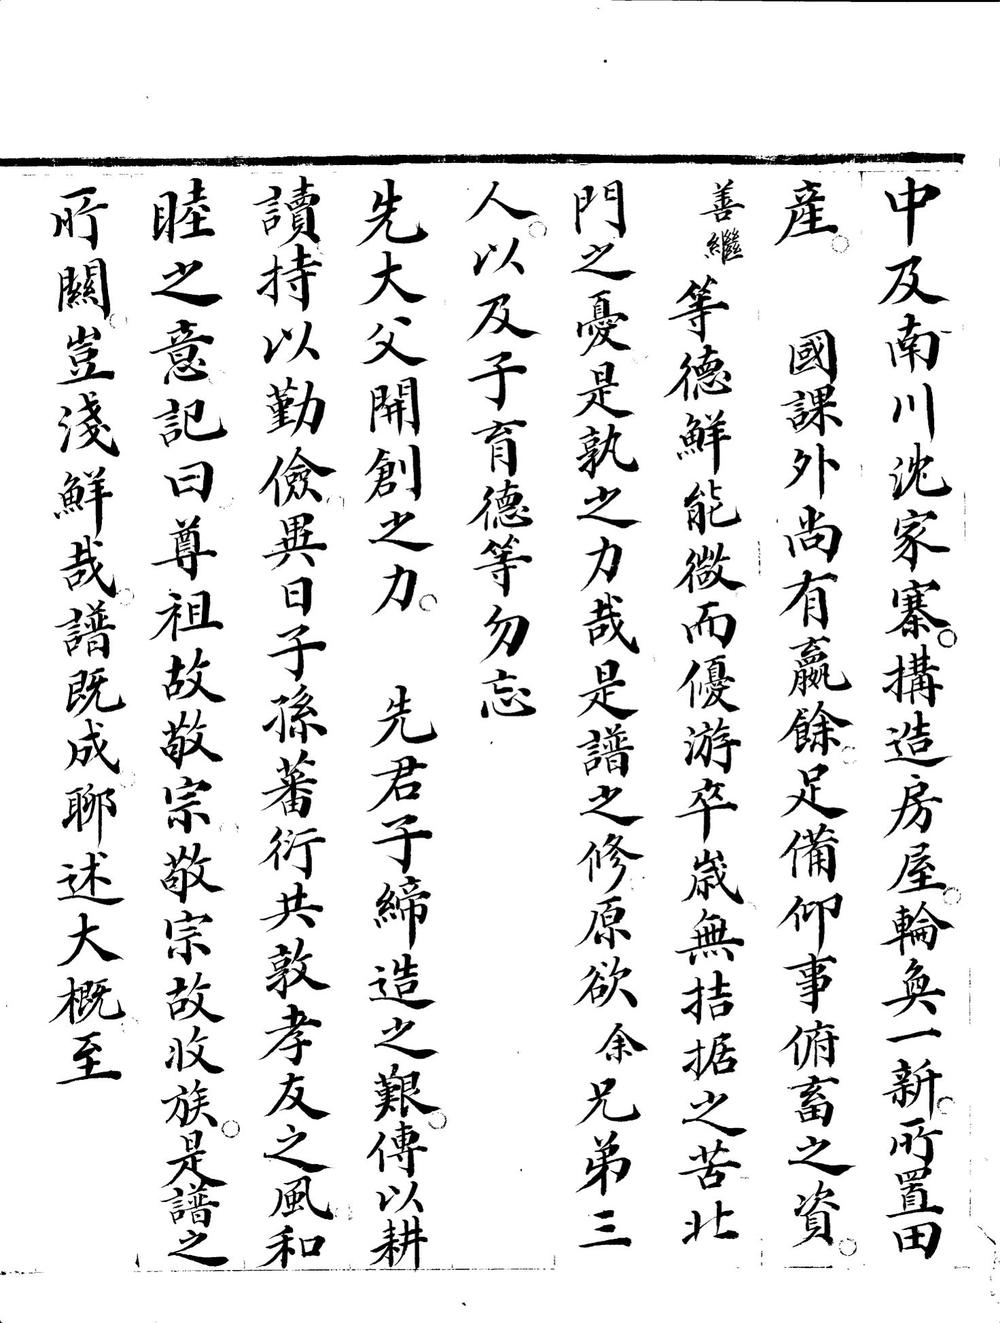 中及南川沈家寨搆造房屋輪奐一新所置田
産　國課外尚有贏餘足備仰事俯畜之資
善繼等德鮮能微而優游卒歲無拮据之苦北
門之憂是孰之力哉是譜之修原欲余兄弟三
人以及子育德等勿忘
先大父開創之力　先君子締造之艱傳以耕
讀持以勤儉異日子孫蕃衍共敦孝友之風和
睦之意記曰尊祖故敬宗敬宗故收族是譜之
所關豈淺鮮哉譜既成聊述大概至